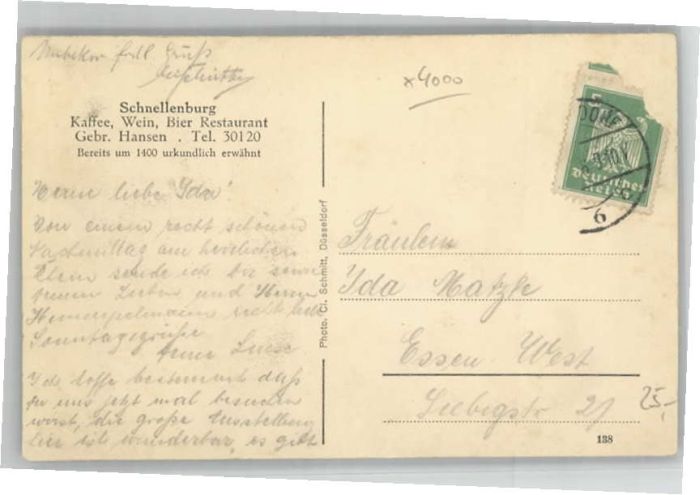 Unbekannter frdl. Gruß
x 4000
Schnellenburg
Kaffee, Wein, Bier Restaurant
Gebr. Hansen . Tel. 30120
Bereits um 1400 urkundlich erwähnt
5
DORF
Deutsches
Reich
6
liebe Ida!
Von einem recht schönen
Nachmittag am herrlichen
Rhein sende ich dir sowie
Lieben und Herrn
recht
Sonntagsgrüße
Luise
Ida hoffe bestimmt daß
du uns jetzt mal besuchen
wirst, die große Ausstellung
hier ist wunderbar, es gibt
Photo. Cl. Schmitt, Düsseldorf
Fräulein
Ida Matzke
Essen-West
Liebigstr 21
25,-
138